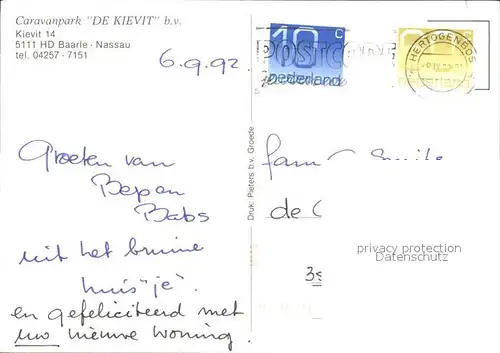 Caravanpark "DE KIEVIT" b.v.
Kievit 14
5111 HD Baarle - Nassau
tel. 04257 - 7151
6.9.92.
Groeten van
Bep en
Babs
uit het bruine
huis"je".
en gefeliciteerd met
uw nieuwe woning.
Druk: Pieters b.v. Groede
10 c
nederland
POSTCODE
c
nederland
HERTOGENBOS
fam
de
privacy protection
Datenschutz